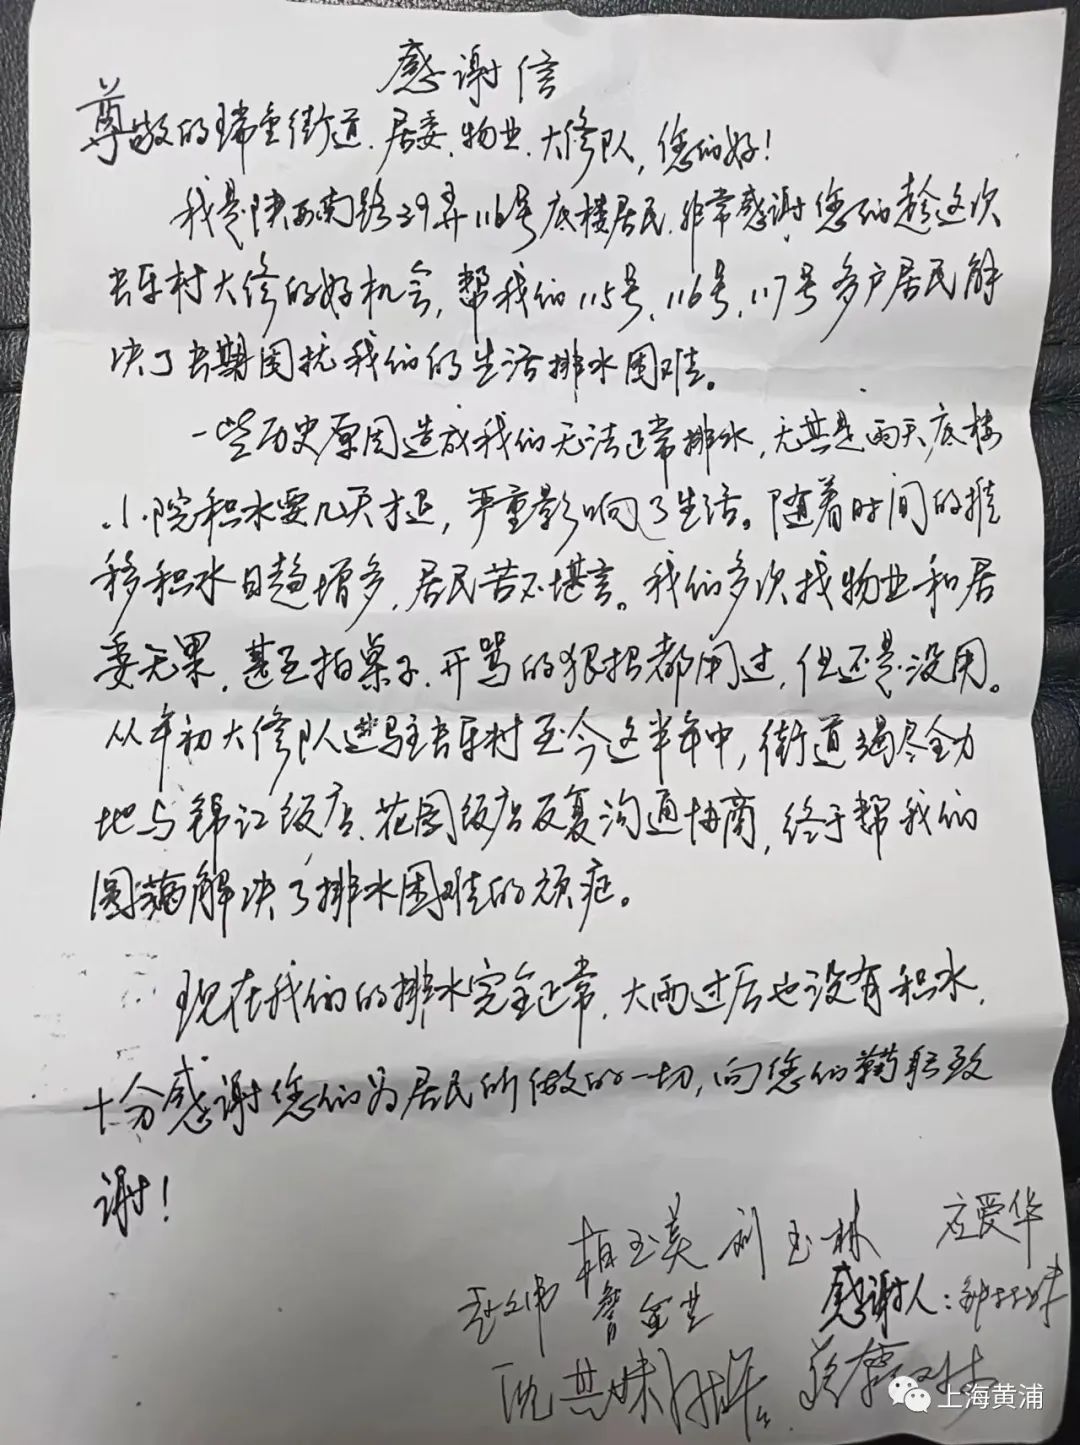 感谢信
尊敬的瑞金街道、居委、物业、大修队，您们好！
我是陕西南路39弄116号底楼居民，非常感谢您们趁这次
长乐村大修的好机会，帮我们115号、116号、117号多户居民解
决了长期困扰我们的生活排水困难。
一些历史原因造成我们无法正常排水，尤其是雨天，底楼
小院积水要几天才退，严重影响了生活。随着时间的推
移积水日趋增多，居民苦不堪言。我们多次找物业和居
委无果，甚至拍桌子、开骂的狠招都用过，但还是没用。
从年初大修队进驻长乐村至今这半年中，街道竭尽全力
地与锦江饭店、花园饭店反复沟通协商，终于帮我们
圆满解决了排水困难的顽症。
现在我们的排水完全正常，大雨过后也没有积水，
十分感谢您们为居民所做的一切，向您们鞠躬致
谢！
刘玉林 应爱华
感谢人：
上海黄浦